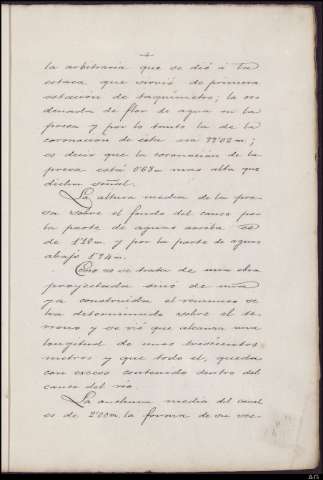 la arbitraria que se dió á la
estaca que sirvió de primera
estación de taquímetro; la or-
denada de flor de agua en la
presa y por lo tanto la de la
coronación de ésta era 99'02 m;
es decir que la coronación de la
presa está 0'68 m mas alta que
dicha señal.
La altura media de la pre-
sa sobre el fondo del cauce por
la parte de aguas arriba es
de 1'10 m. y por la parte de aguas
abajo 1'74 m.
Como no se trata de una obra
proyectada sinó de una
ya construida el remanso se
ha determinado sobre el te-
rreno y se vió que alcanza una
longitud de unos trescientos
metros y que todo el, queda
con exceso contenido dentro del
cauce del río.
La anchura media del canal
es de 2'00 m, la forma de su sec-